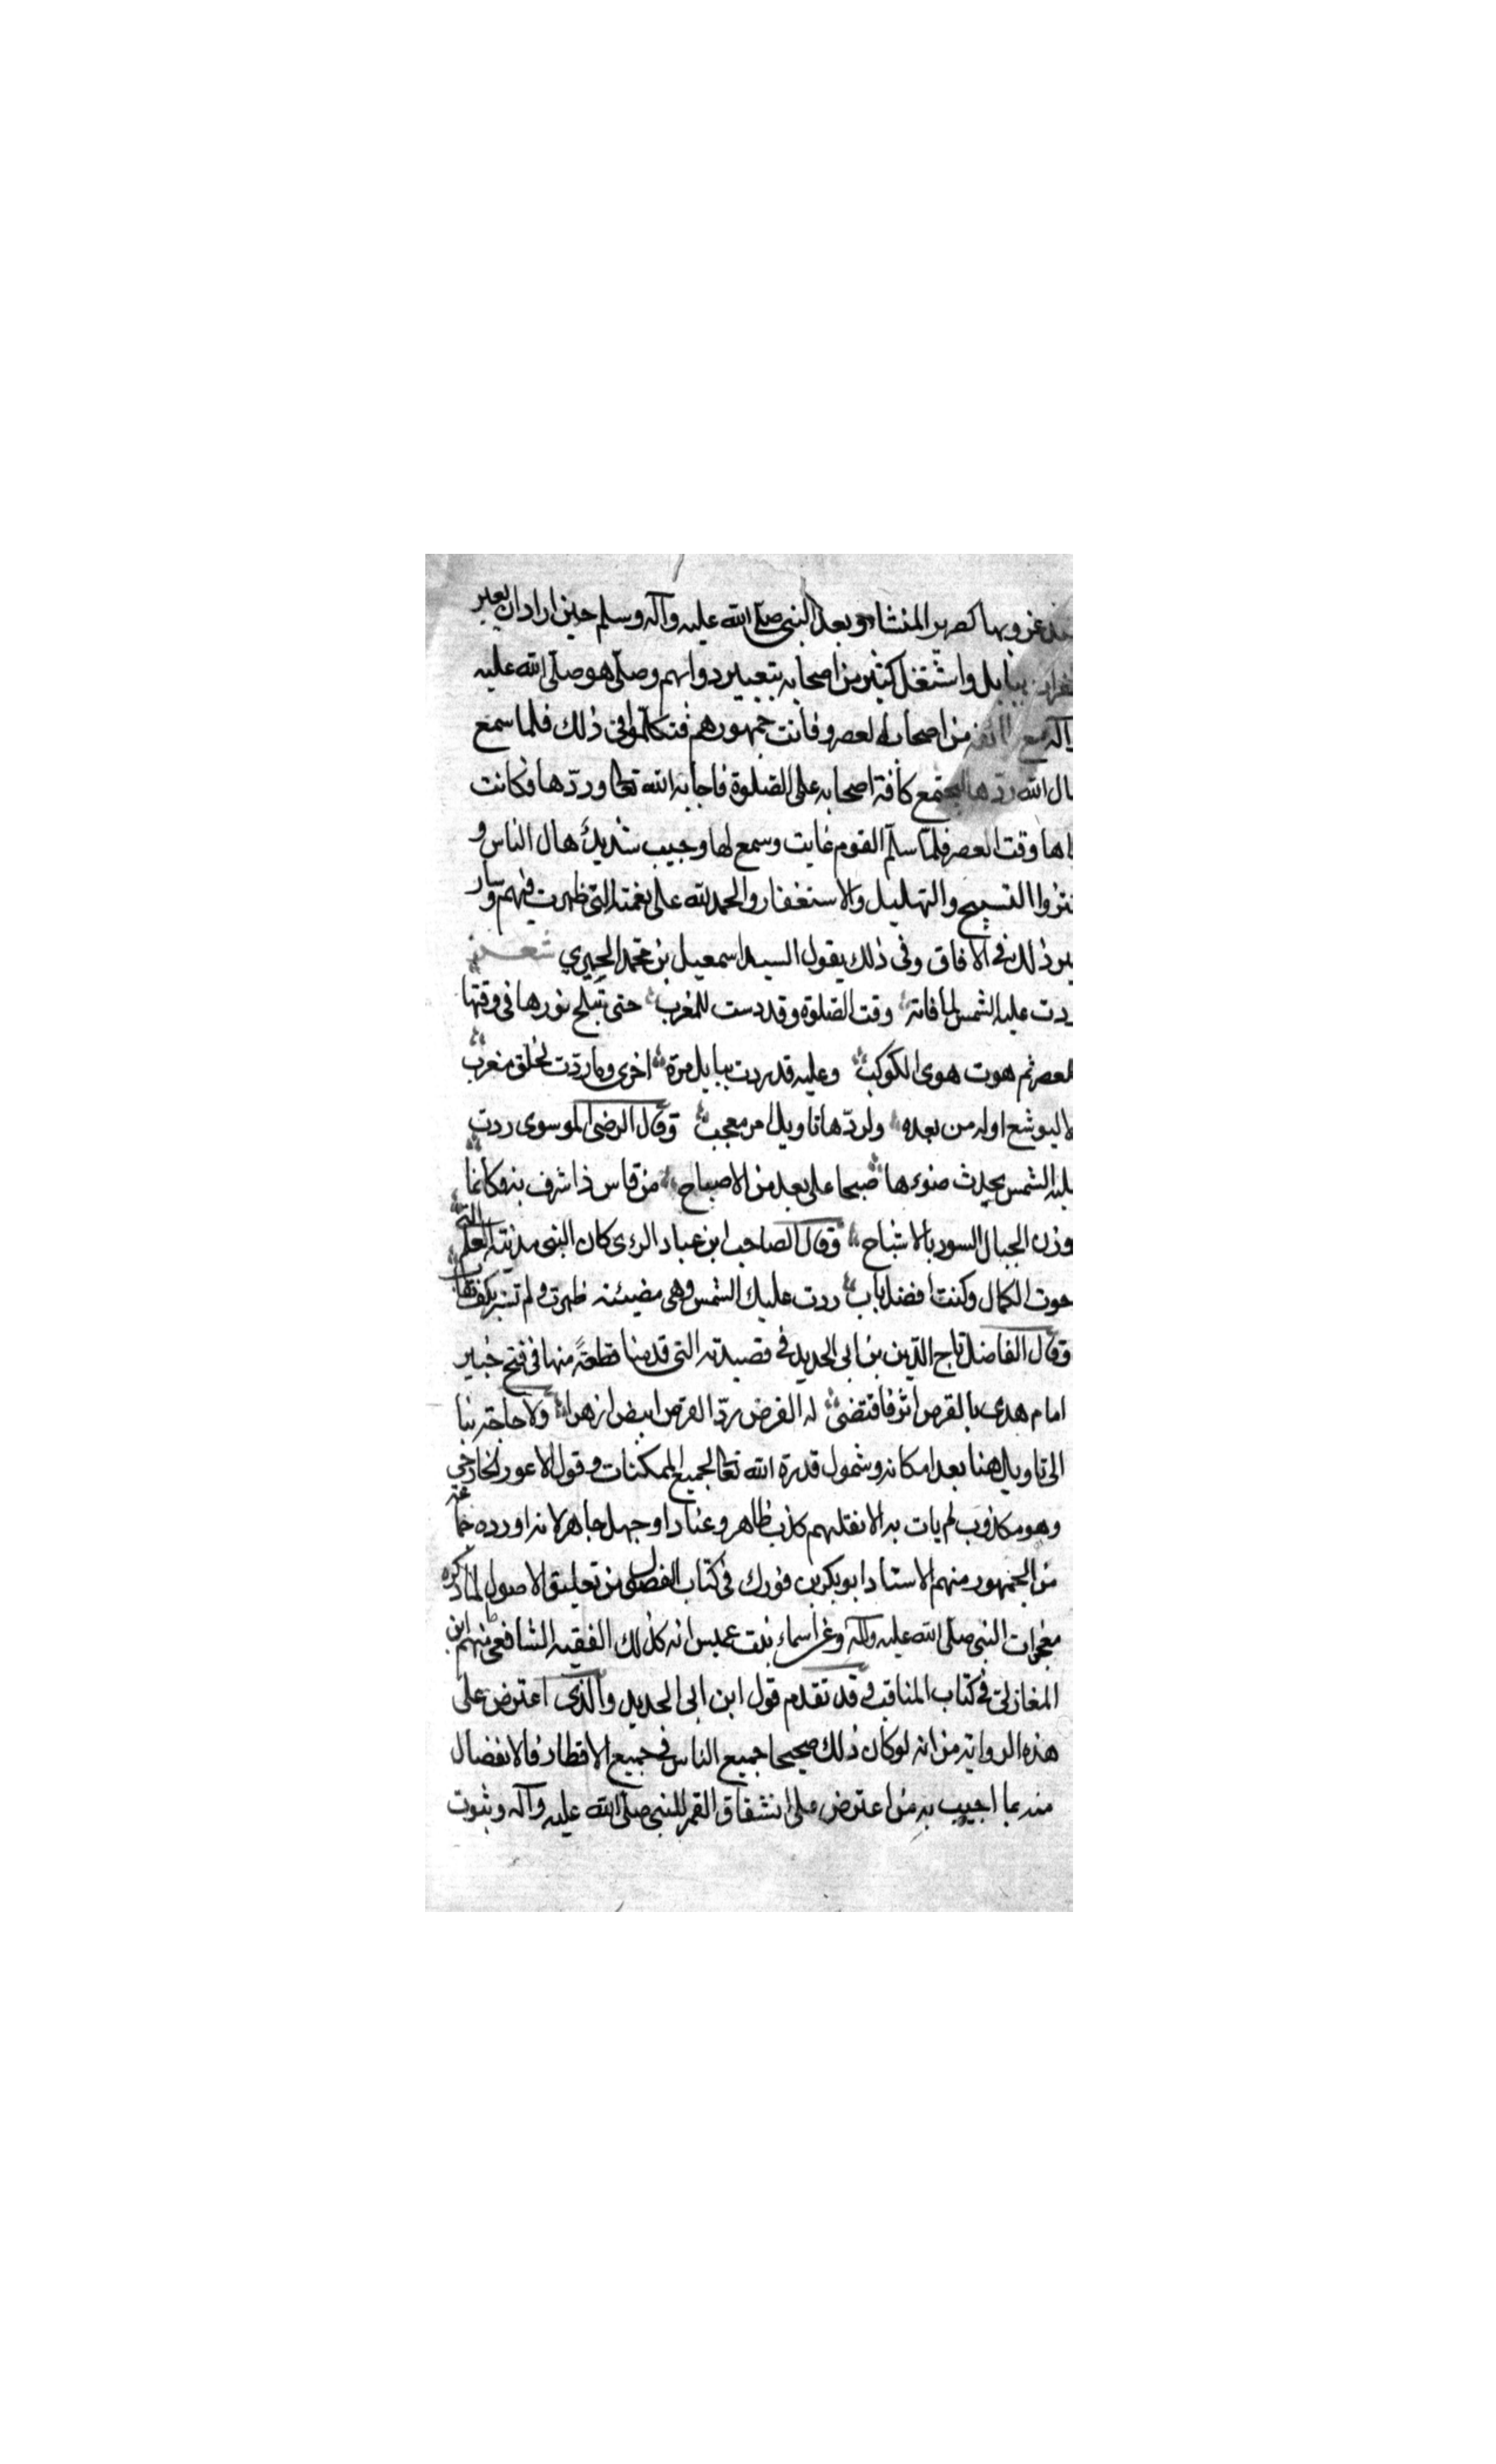 عند غروبها كصرير المنشار وبعد النبي صلى الله عليه وآله وسلم حين اراد ان يعبر
الفرات ببابل واشتغل كثير من اصحابه بتعبير دوابهم وصلى هو صلى الله عليه
وآله مع من اصحابه العصر وفاتت جمهورهم فتكلموا في ذلك فلما سمع
سال الله ردها ليجتمع كافة اصحابه على الصلوة فاجابه الله تعا وردها فكانت
وقت العصر فلما سلم القوم غابت وسمع لها وجيب شديد هال الناس و
التسبيح والتهليل والاستغفار والحمد لله على نعمته التي ظهرت فيهم وسار
ذلك في الافاق وفى ذلك يقول السيد اسمعيل بن محمد الحميري شعر
ردت عليه الشمس لما فاته وقت الصلوة وقد دست للمغرب حتى تبلج نورها في وقتها
للعصر ثم هوت هوى الكوكب وعليه قد ردت ببابل مرة اخرى وما ردت لخلق مغرب
الا ليوشع او له من بعده ولردها تاويل امر معجب وقال الرضى الموسوى ردت
عليه الشمس يحدث ضوءها صبحا على بعد من الاصباح من قاس ذا شرف به فكانما
وزن الجبال السود بالاشباح وقال الصاحب ابن عباد الرى كان النبى مدينة العلم التى
حوت الكمال وكنت افضل باب ردت عليك الشمس وهى مضيئه ظهرت ولم تستر بكف نقاب
وقال الفاضل تاج الدين بن ابى الحديد في قصيدته التى قدمنا قطعة منها في فتح خيبر
امام هدى بالقرص اثر فاقتضى له القرض رد القرص ابيض ازهرا ولا حاجة بنا
الى تاويل هنا بعد امكانه وشمول قدرة الله تعا لجميع الممكنات وقول الاعور الخارجي
وهو مكذوب لم يات به الا نقلهم كذب ظاهر وعناد او جهل جاهر لانه اورده جماعة
من الجمهور منهم الاستاد ابو بكر بن فورك في كتاب الفصول من تعليق الاصول لما ذكره
معجزات النبى صلى الله عليه وآله وعن اسماء بنت عميس انه كذلك الفقيه الشافعى منهم ابن
المغازلى في كتاب المناقب وقد تقدم قول ابن ابى الحديد والذى اعترض على
هذه الرواية من انه لو كان ذلك صحيحا جميع الناس في جميع الاقطار فالانفصال
منه بما اجيب به من اعترض على انشقاق القمر للنبى صلى الله عليه وآله وثبوت